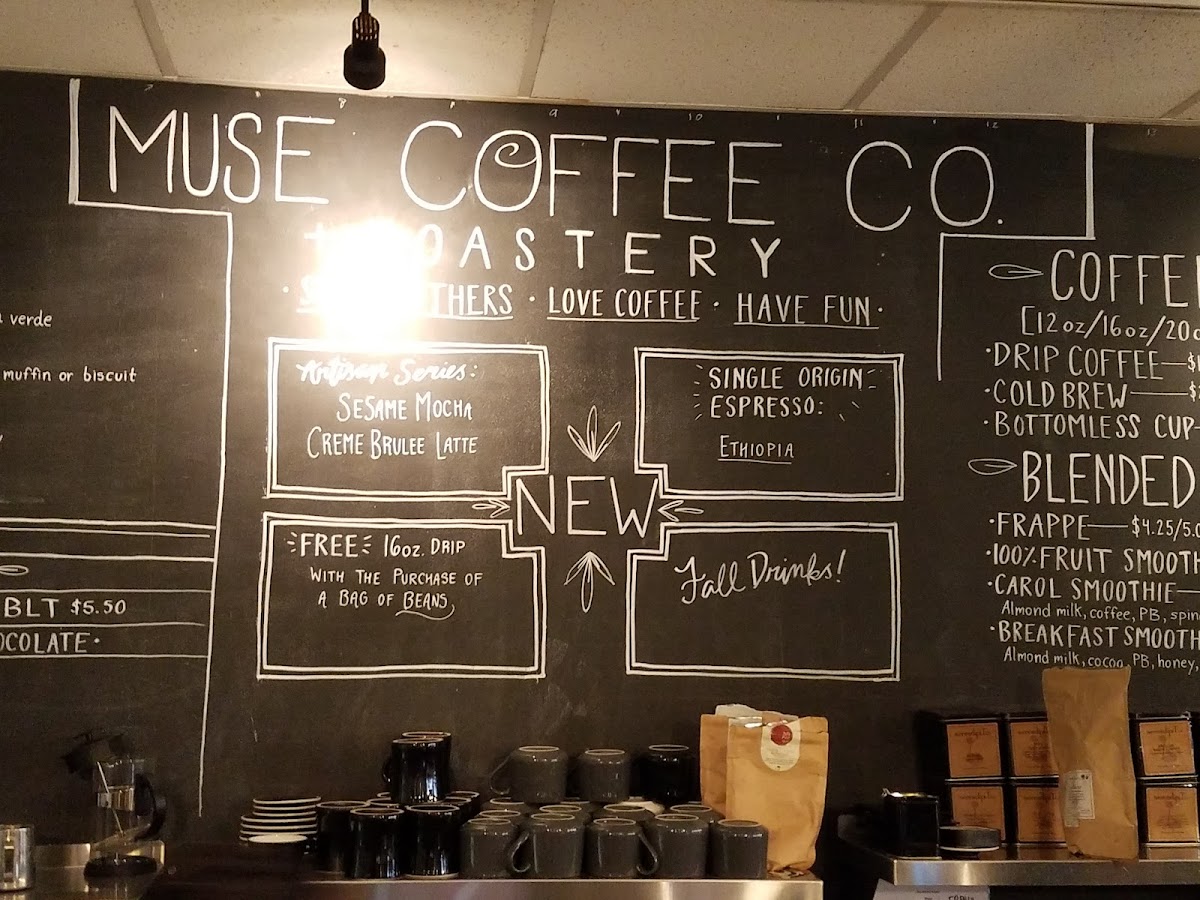 MUSE COFFEE CO.
OASTERY
THERS · LOVE COFFEE · HAVE FUN ·
verde
muffin or biscuit
BLT $5.50
OCOLATE ·
Artisan Series:
SESAME MOCHA
CREME BRULEE LATTE
SINGLE ORIGIN
ESPRESSO:
ETHIOPIA
NEW
FREE 16oz. DRIP
WITH THE PURCHASE OF
A BAG OF BEANS
Fall Drinks!
COFFE
[12oz/16oz/20o
· DRIP COFFEE — $
· COLD BREW — $
· BOTTOMLESS CUP -
BLENDED
· FRAPPE — $4.25/5.0
· 100% FRUIT SMOOTH
· CAROL SMOOTHIE —
Almond milk, coffee, PB, spin
· BREAKFAST SMOOTH
Almond milk, cocoa, PB, honey,